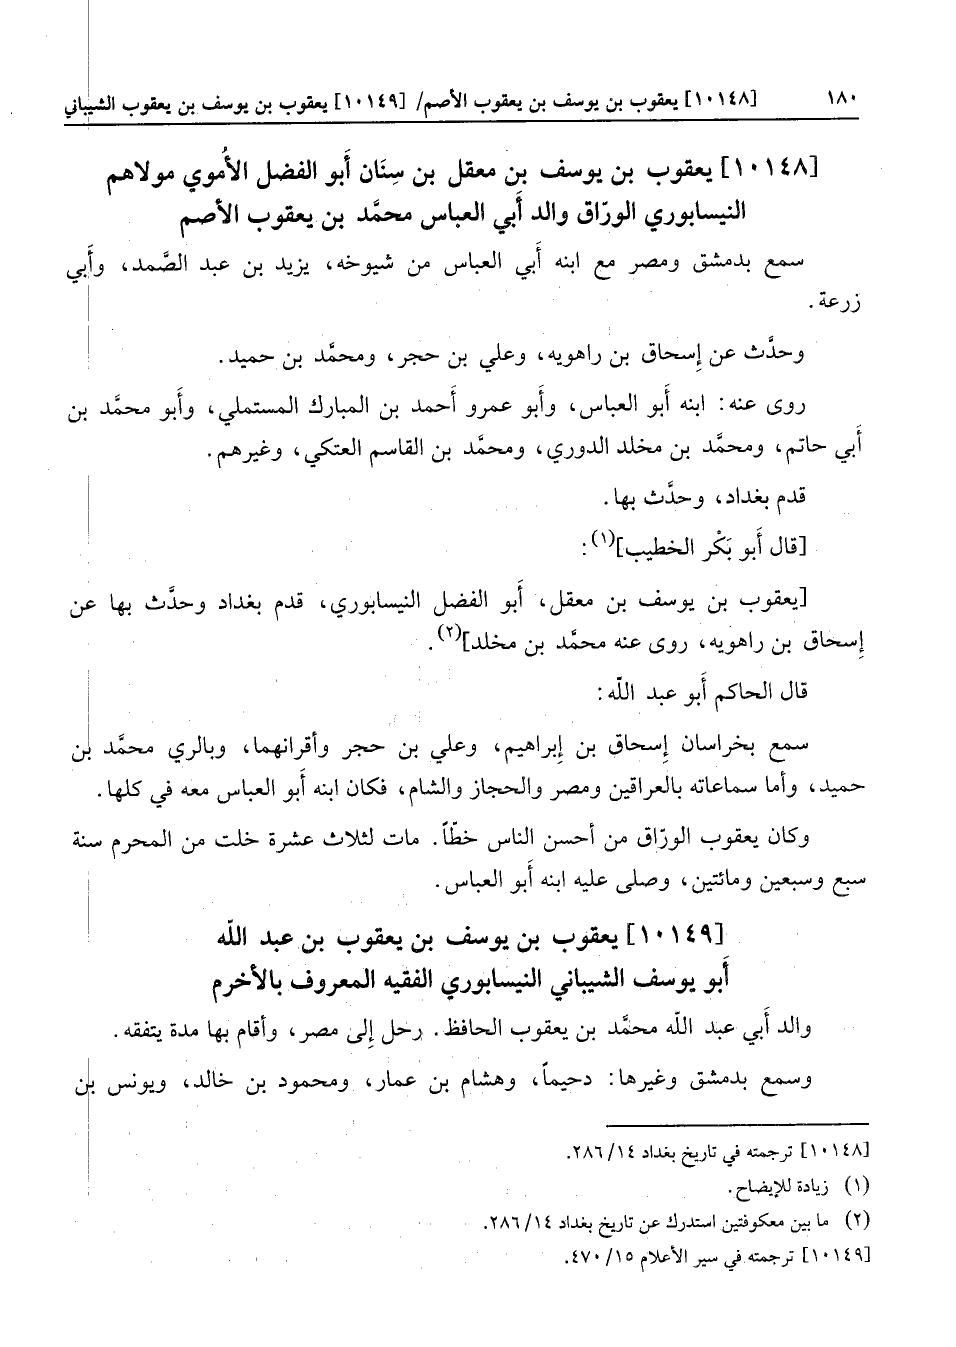 ١٨٠ [١٠١٤٨] يعقوب بن يوسف بن يعقوب الأصم/ [١٠١٤٩] يعقوب بن يوسف بن يعقوب الشيباني
[١٠١٤٨] يعقوب بن يوسف بن معقل بن سِنَان أَبو الفضل الأُموي مولاهم
النيسابوري الورّاق والد أَبي العباس محمَّد بن يعقوب الأصم
سمع بدمشق ومصر مع ابنه أَبي العباس من شيوخه، يزيد بن عبد الصَّمد، وأَبي
زرعة.
وحدَّث عن إِسحاق بن راهويه، وعلي بن حجر، ومحمَّد بن حميد.
روى عنه: ابنه أَبو العباس، وأَبو عمرو أَحمد بن المبارك المستملي، وأَبو محمَّد بن
أَبي حاتم، ومحمَّد بن مخلد الدوري، ومحمَّد بن القاسم العتكي، وغيرهم.
قدم بغداد، وحدَّث بها.
[قال أَبو بَكْر الخطيب](١):
[يعقوب بن يوسف بن معقل، أَبو الفضل النيسابوري، قدم بغداد وحدَّث بها عن
إِسحاق بن راهويه، روى عنه محمَّد بن مخلد](٢).
قال الحاكم أَبو عبد اللّه:
سمع بخراسان إِسحاق بن إِبراهيم، وعلي بن حجر وأقرانهما، وبالري محمَّد بن
حميد، وأما سماعاته بالعراقين ومصر والحجاز والشام، فكان ابنه أَبو العباس معه في كلها.
وكان يعقوب الورّاق من أحسن الناس خطّاً. مات لثلاث عشرة خلت من المحرم سنة
سبع وسبعين ومائتين، وصلى عليه ابنه أَبو العباس.
[١٠١٤٩] يعقوب بن يوسف بن يعقوب بن عبد اللّه
أَبو يوسف الشيباني النيسابوري الفقيه المعروف بالأخرم
والد أَبي عبد اللّه محمَّد بن يعقوب الحافظ. رحل إِلى مصر، وأقام بها مدة يتفقه.
وسمع بدمشق وغيرها: دحيماً، وهشام بن عمار، ومحمود بن خالد، ويونس بن
[١٠١٤٨] ترجمته في تاريخ بغداد ١٤/ ٢٨٦.
(١) زيادة للإيضاح.
(٢) ما بين معكوفتين استدرك عن تاريخ بغداد ١٤/ ٢٨٦.
[١٠١٤٩] ترجمته في سير الأعلام ١٥/ ٤٧٠.